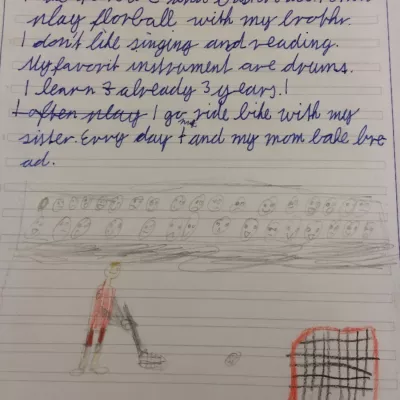 play florball with my brothr.
I don't like singing and reading.
My favorit instrument are drums.
I learn already 3 years.!
I often play I go ride bike with my
sister. Evry day I and my mom bake bre
ad.